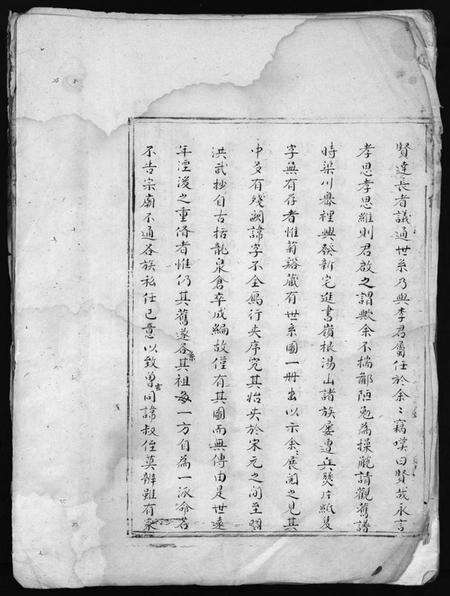 賢達長者議通世系乃與李君屬任於余〻竊嘆曰賢哉永言
孝思孝思維則君啟之謂歟余不揣鄙陋勉為操觚請觀舊譜
時梁川寨裡興發新宅進書嶺根湯山諸族屢遭兵燹片紙隻
字無有存者惟菊谿藏有世系圖一冊出以示余〻展閱之見其
中多有殘闕諱字不全鴈行失序究其始失於宋元之間至明
洪武抄自古括龍泉倉卒成編故僅有其圖而無傳由是世遠
年湮後之重脩者惟仍其舊遂各其祖系一方自為一派命名
不告宗廟不通各族私任己意以致曾玄同諱叔侄莫辨雖有